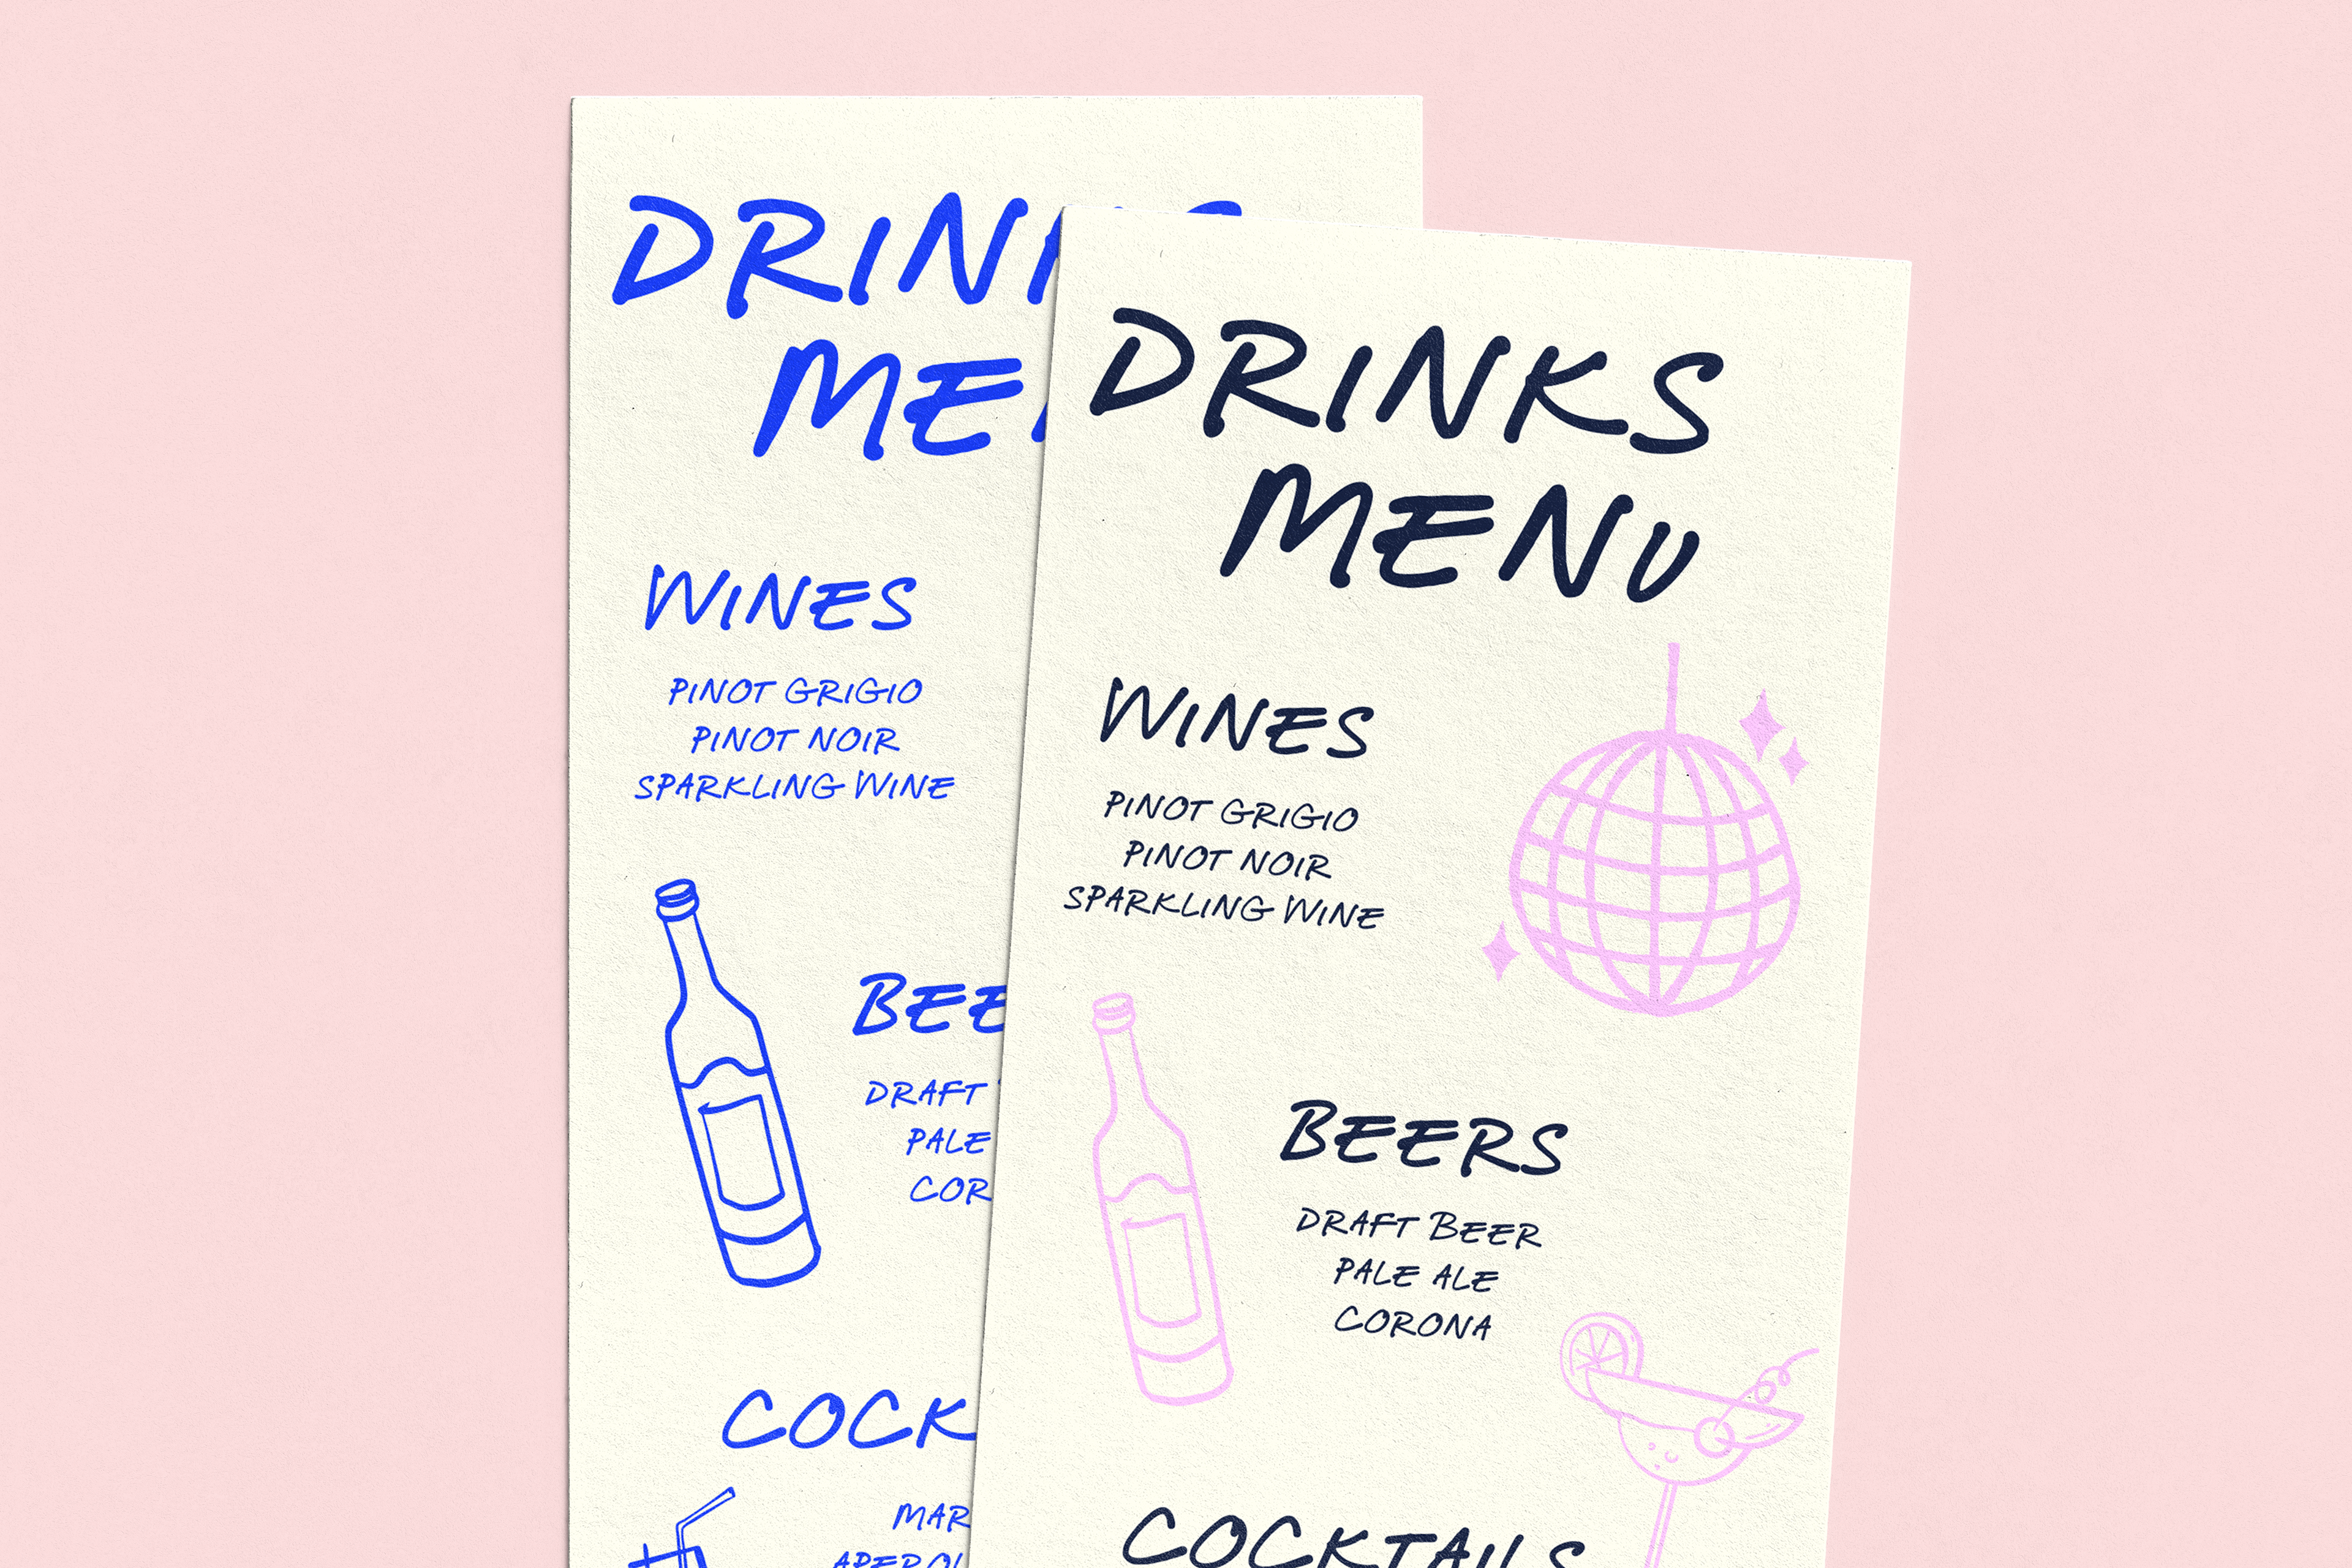 DRIN
ME
WINES
PINOT GRIGIO
PINOT NOIR
SPARKLING WINE
BEE
DRAFT
PALE
COR
COCK
MAR
DRINKS
MENU
WINES
PINOT GRIGIO
PINOT NOIR
SPARKLING WINE
BEERS
DRAFT BEER
PALE ALE
CORONA
COCKTAILS